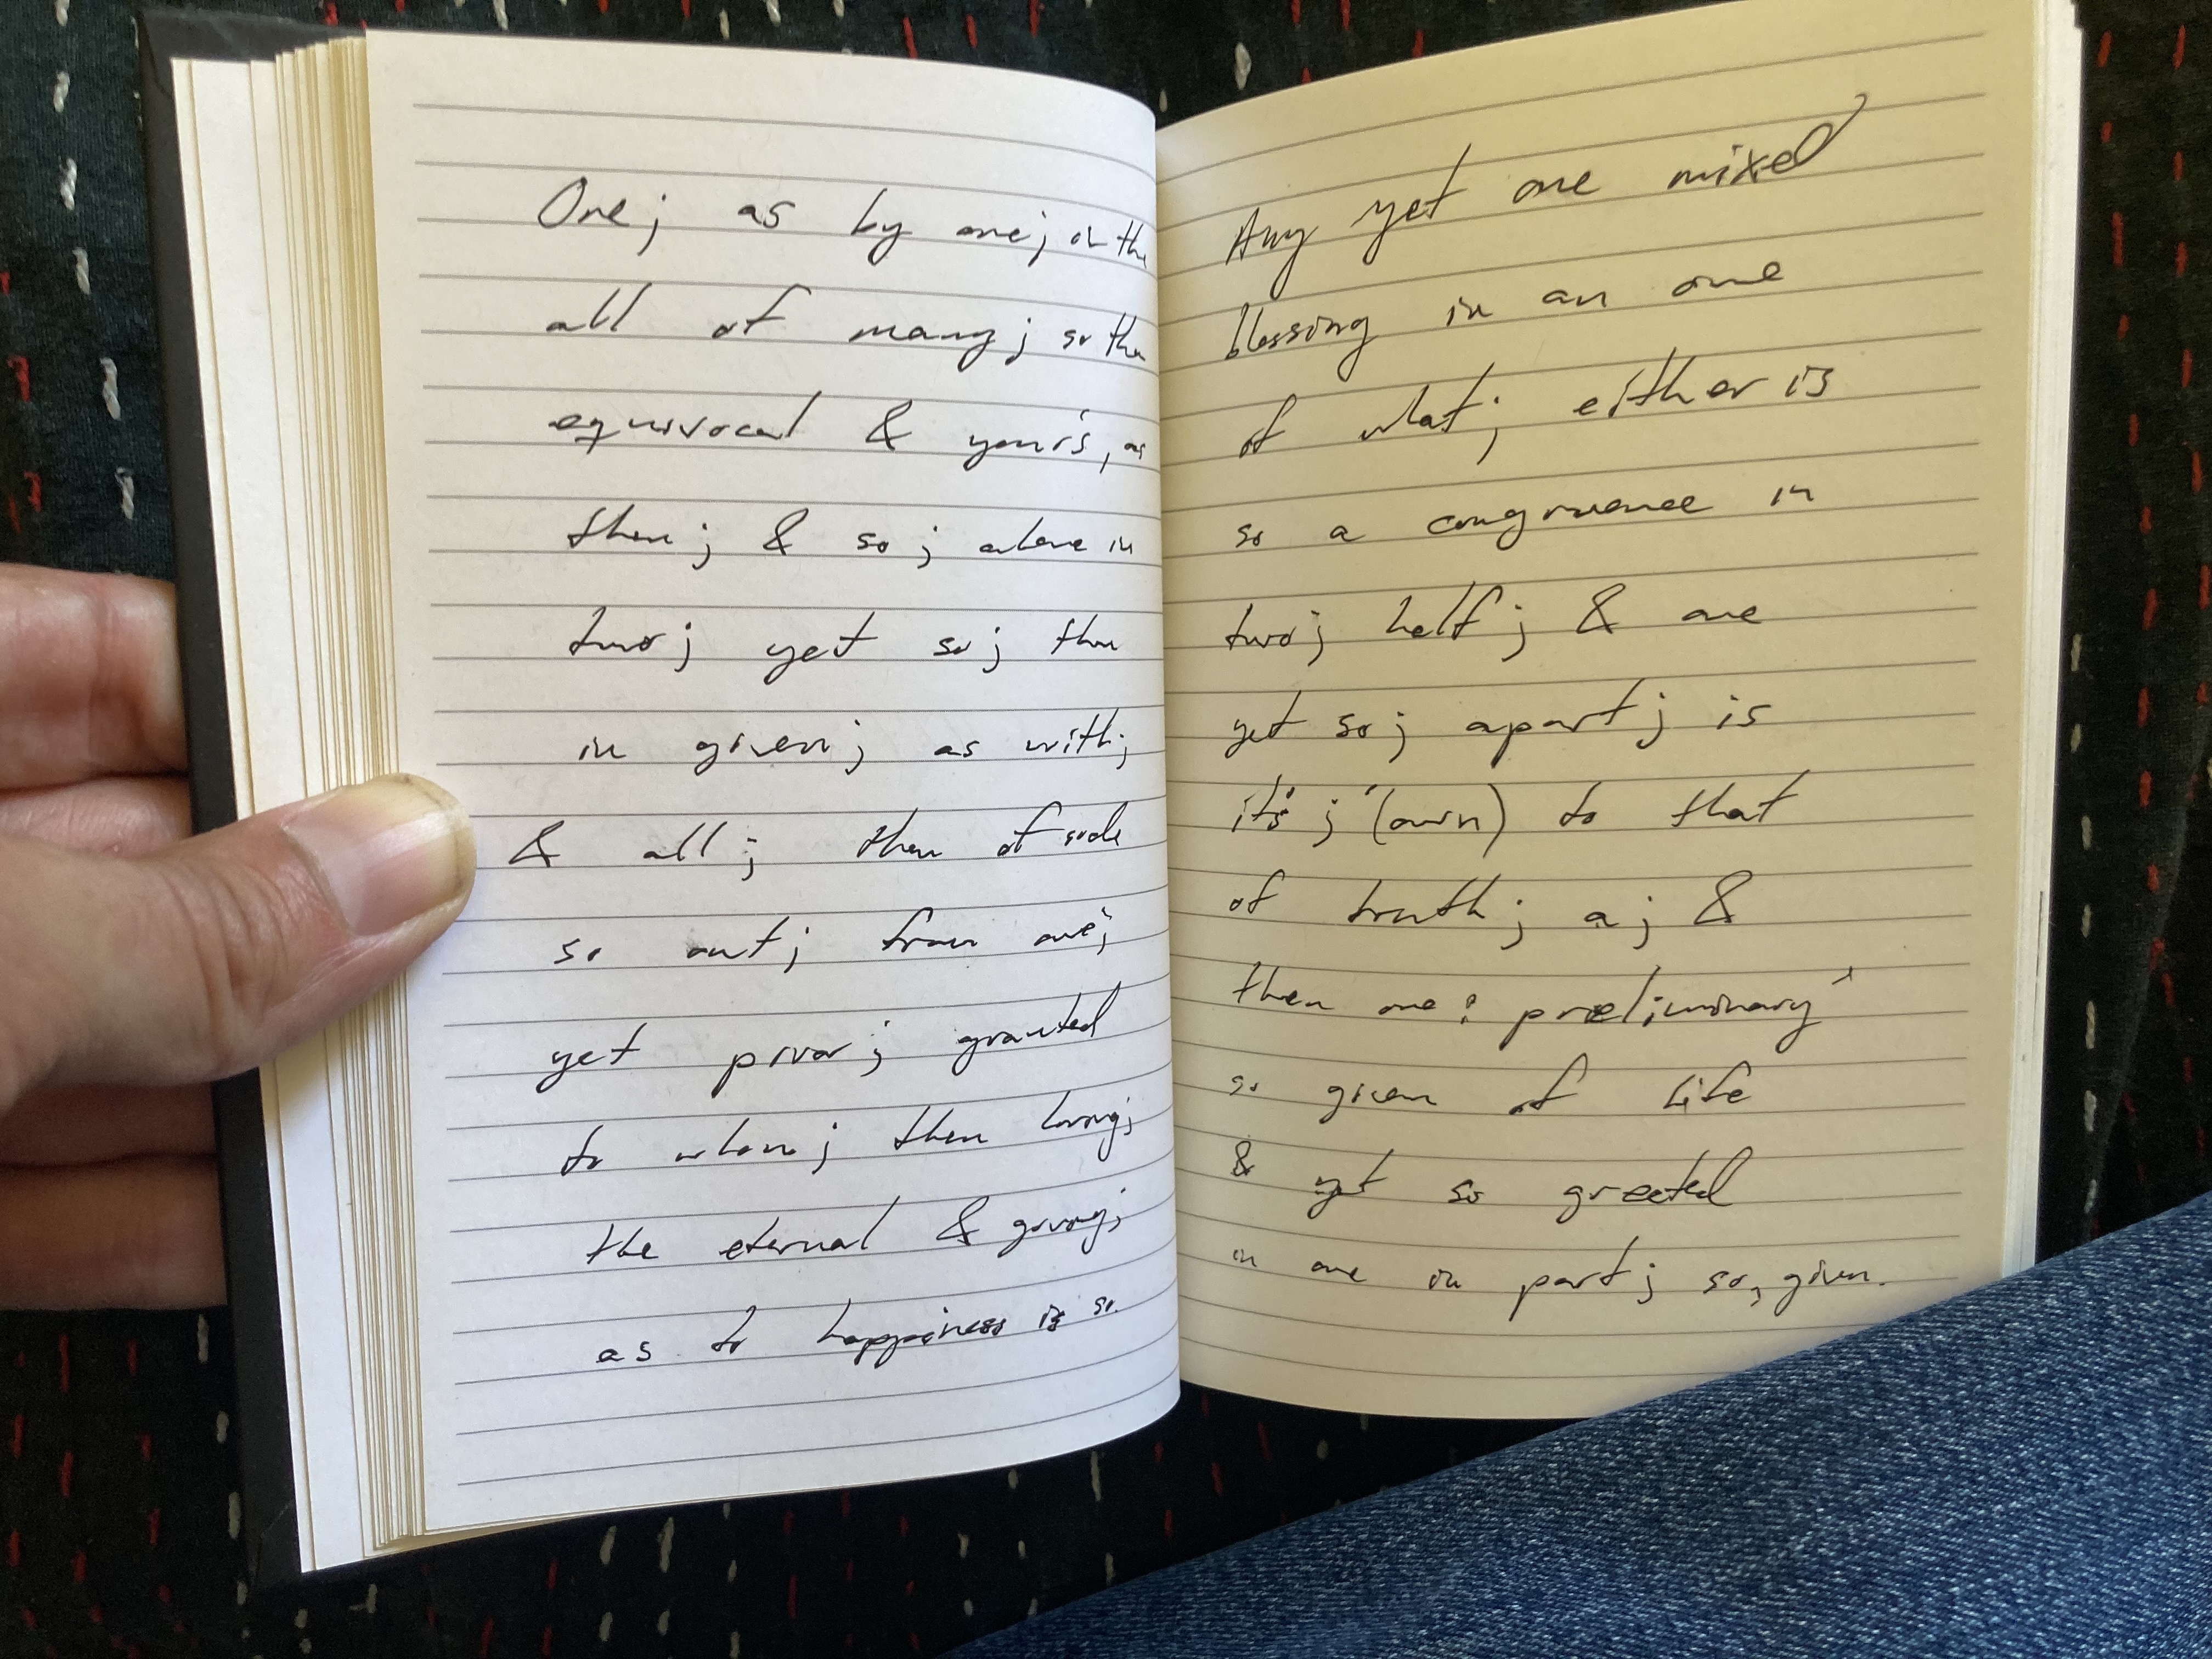 One; as by one; or the
all of many; so then
equivocal & your's, as
then; & so; alone in
two; yet so; then
in given; as with;
& all; then of side
so out; from one;
yet prior; granted
to whom; then loving;
the eternal & giving;
as to happiness is so.
Any yet one mixed
blessing in an one
of what; either is
so a congruence in
two; half; & one
yet so; apart; is
it's; '(own) to that
of truth; a; &
then one: preliminary'
so given of life
& yet so greeted
in one in part; so, given.